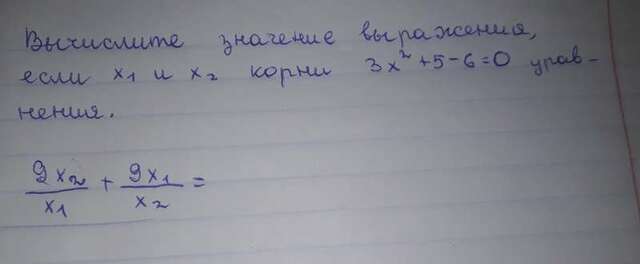 Вычислите значение выражения,
если x₁ и x₂ корни 3x²+5-6=0 урав-
нения.
9x₂/x₁ + 9x₁/x₂ =